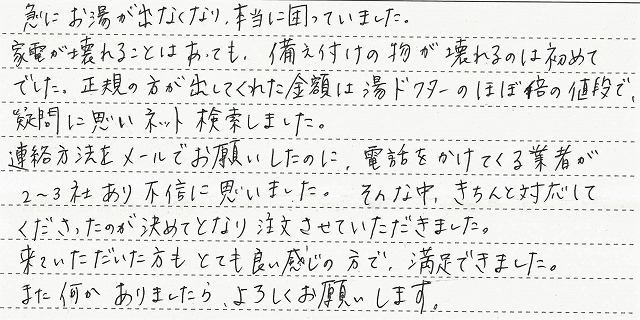 急にお湯が出なくなり、本当に困っていました。
家電が壊れることはあっても、備え付けの物が壊れるのは初めて
でした。正規の方が出してくれた金額は湯ドクターのほぼ倍の値段で、
疑問に思いネット検索しました。
連絡方法をメールでお願いしたのに、電話をかけてくる業者が
2〜3社あり不信に思いました。そんな中、きちんと対応して
くださったのが決めてとなり注文させていただきました。
来ていただいた方もとても良い感じの方で、満足できました。
また何かありましたら、よろしくお願いします。